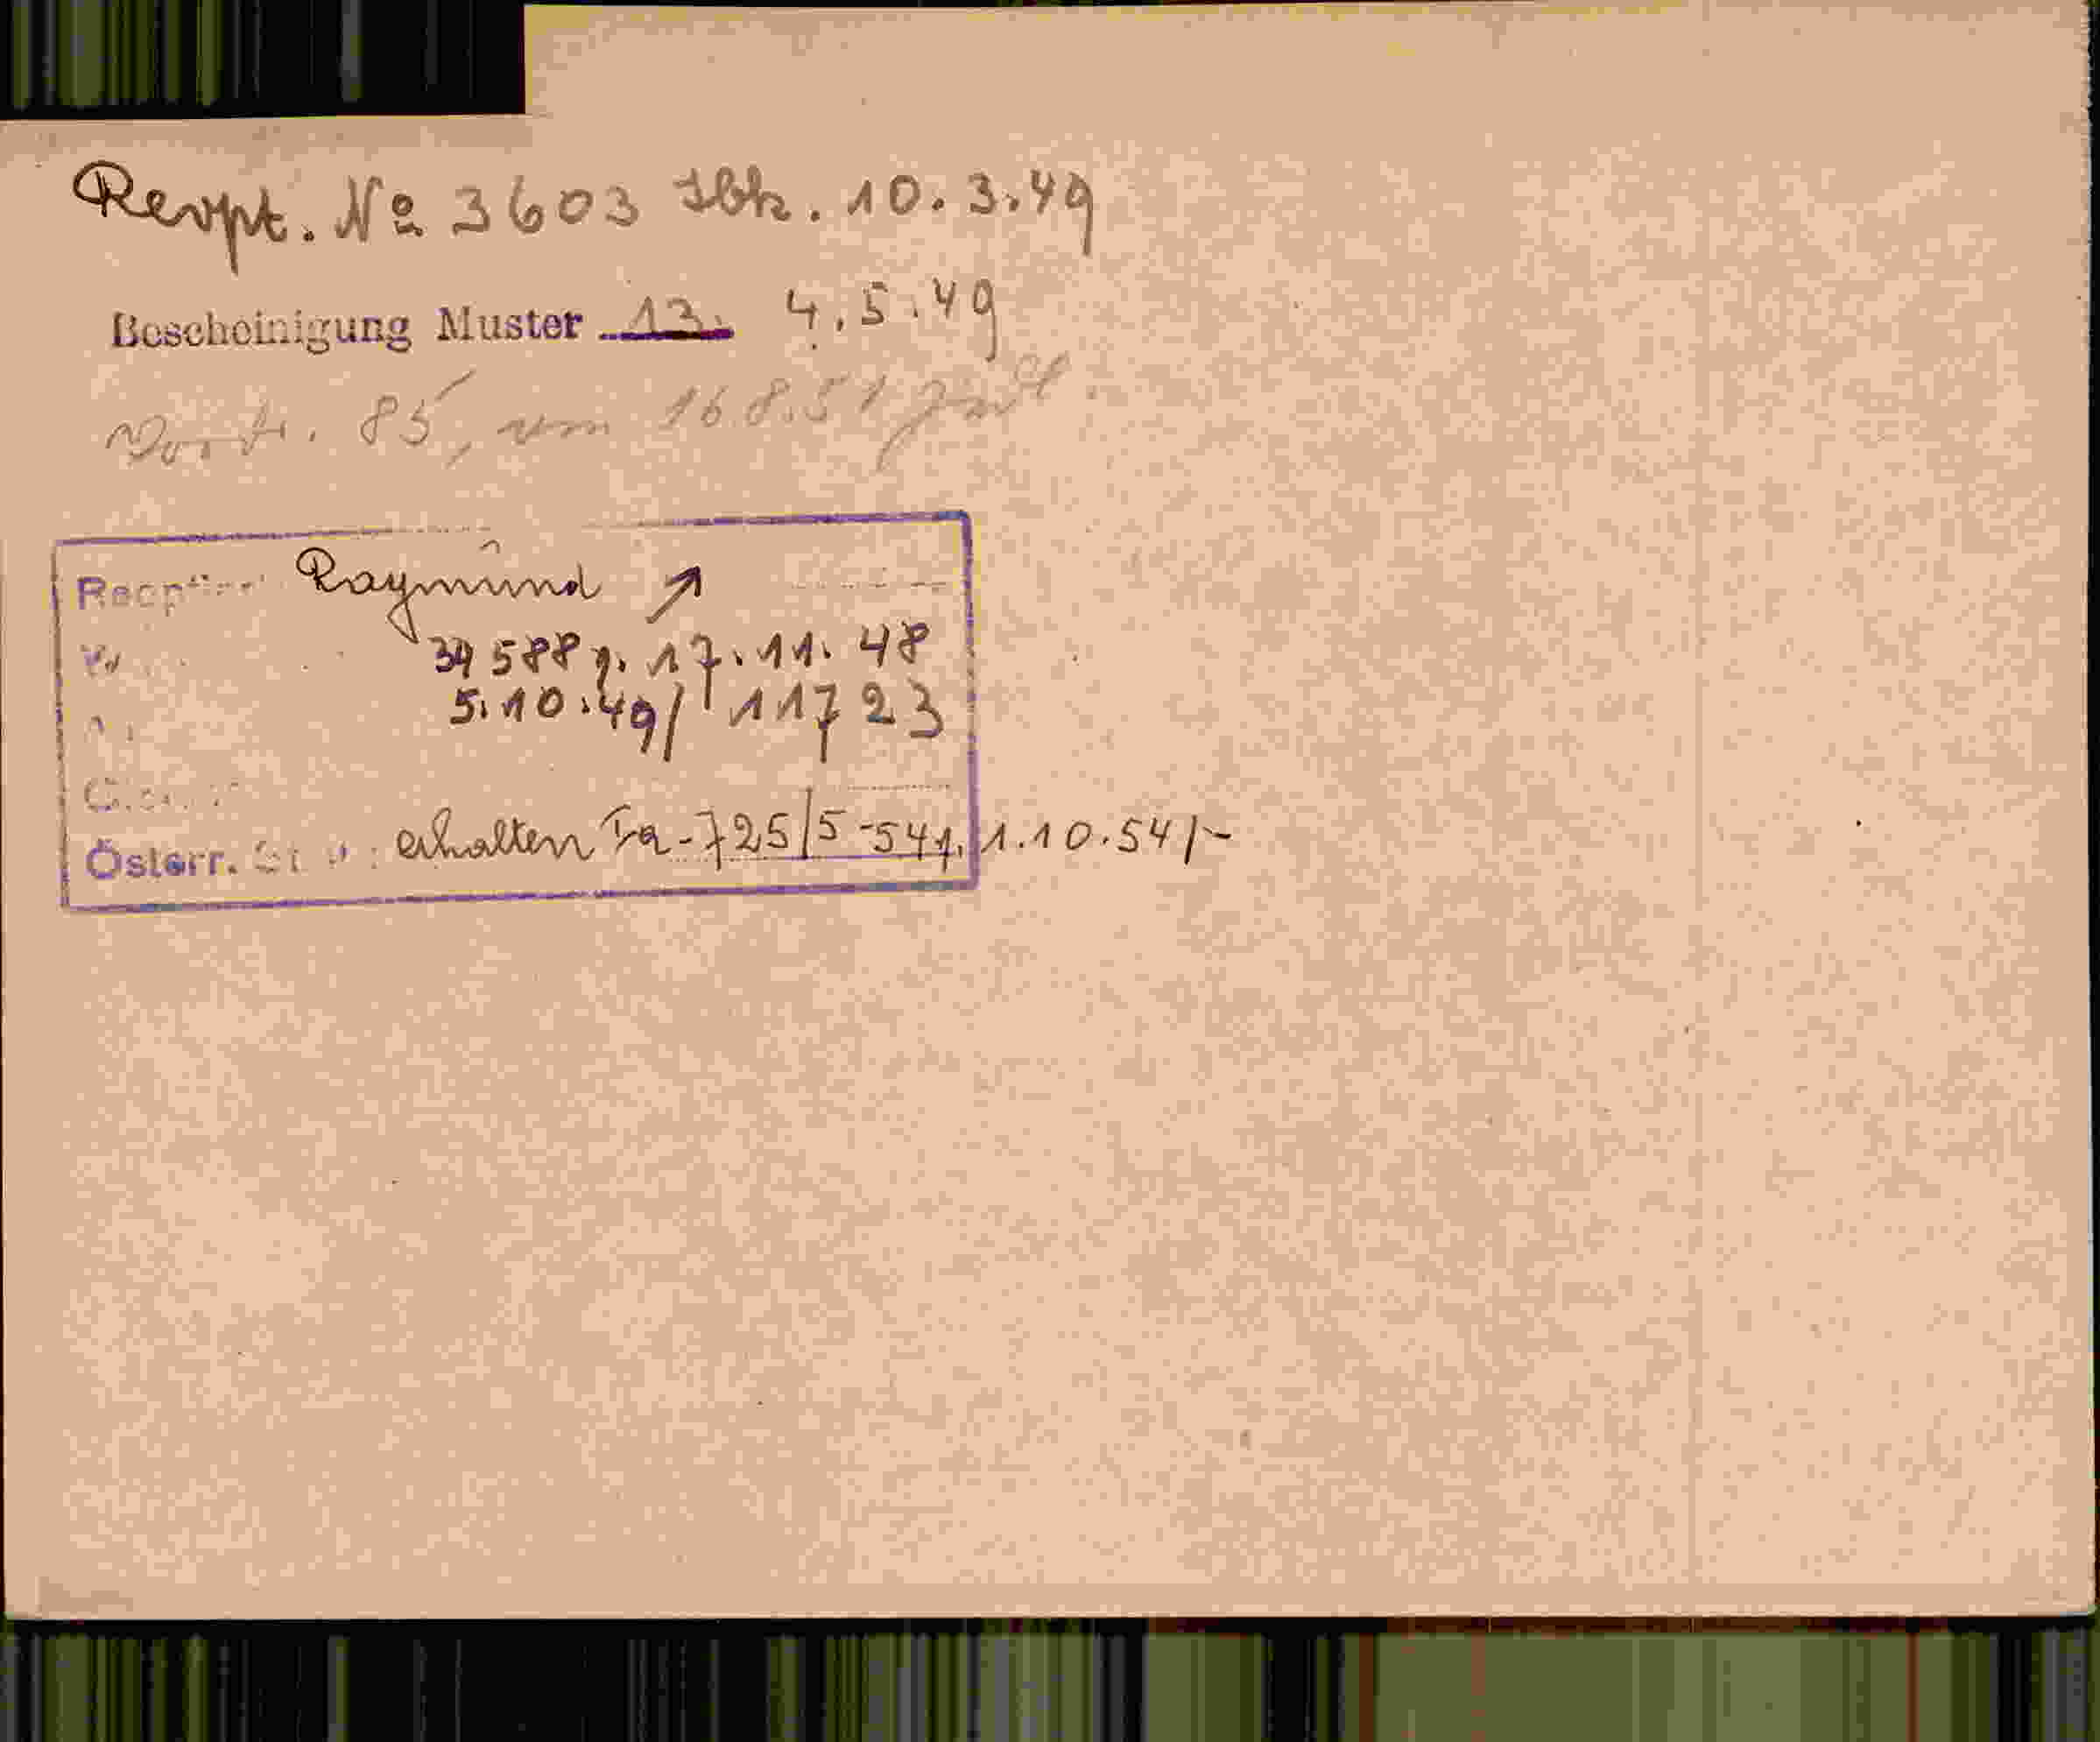 Revpt. No 3603 Ibk. 10.3.49
Bescheinigung Muster 13. 4.5.49
85, vom 16.8.51
Raymund ↗
34588 v. 17.11.48
5.10.49/ 11723
Österr. erhalten Ia-725/5-54 v. 1.10.54/-